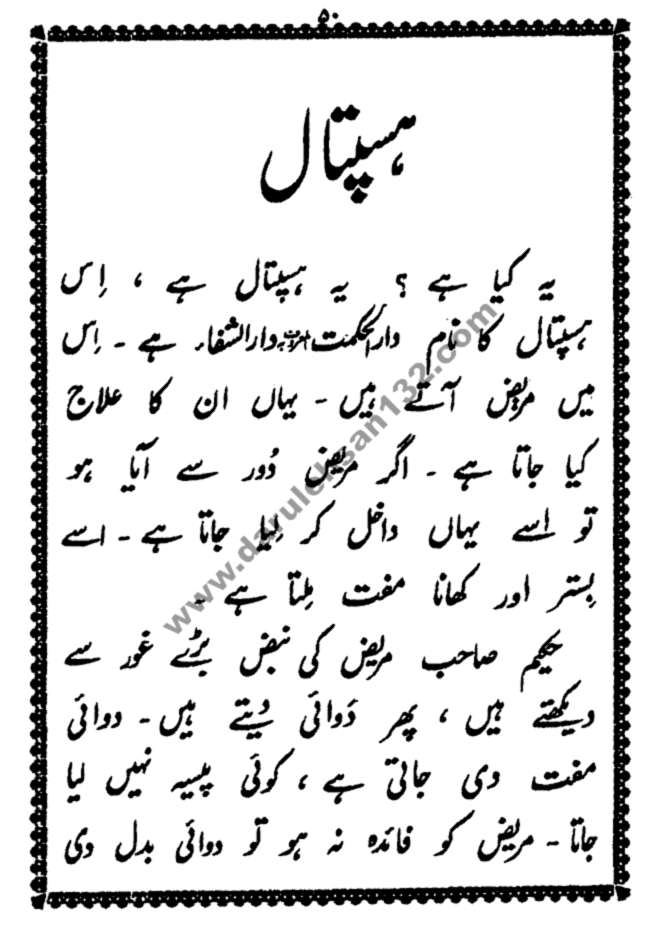 ۵۰
ہسپتال
یہ کیا ہے ؟ یہ ہسپتال ہے ، اِس
ہسپتال کا نام دارالحکمت المعروف دارالشفاء ہے ۔ اِس
میں مریض آتے ہیں ۔ یہاں ان کا علاج
کیا جاتا ہے ۔ اگر مریض دُور سے آیا ہو
تو اسے یہاں داخل کر لیا جاتا ہے ۔ اسے
بِستر اور کھانا مفت مِلتا ہے ۔
حکیم صاحب مریض کی نبض بڑے غور سے
دیکھتے ہیں ، پھر دَوائی دیتے ہیں ۔ دوائی
مفت دی جاتی ہے ، کوئی پیسہ نہیں لیا
جاتا ۔ مریض کو فائدہ نہ ہو تو دوائی بدل دی
www.darulehsan132.com